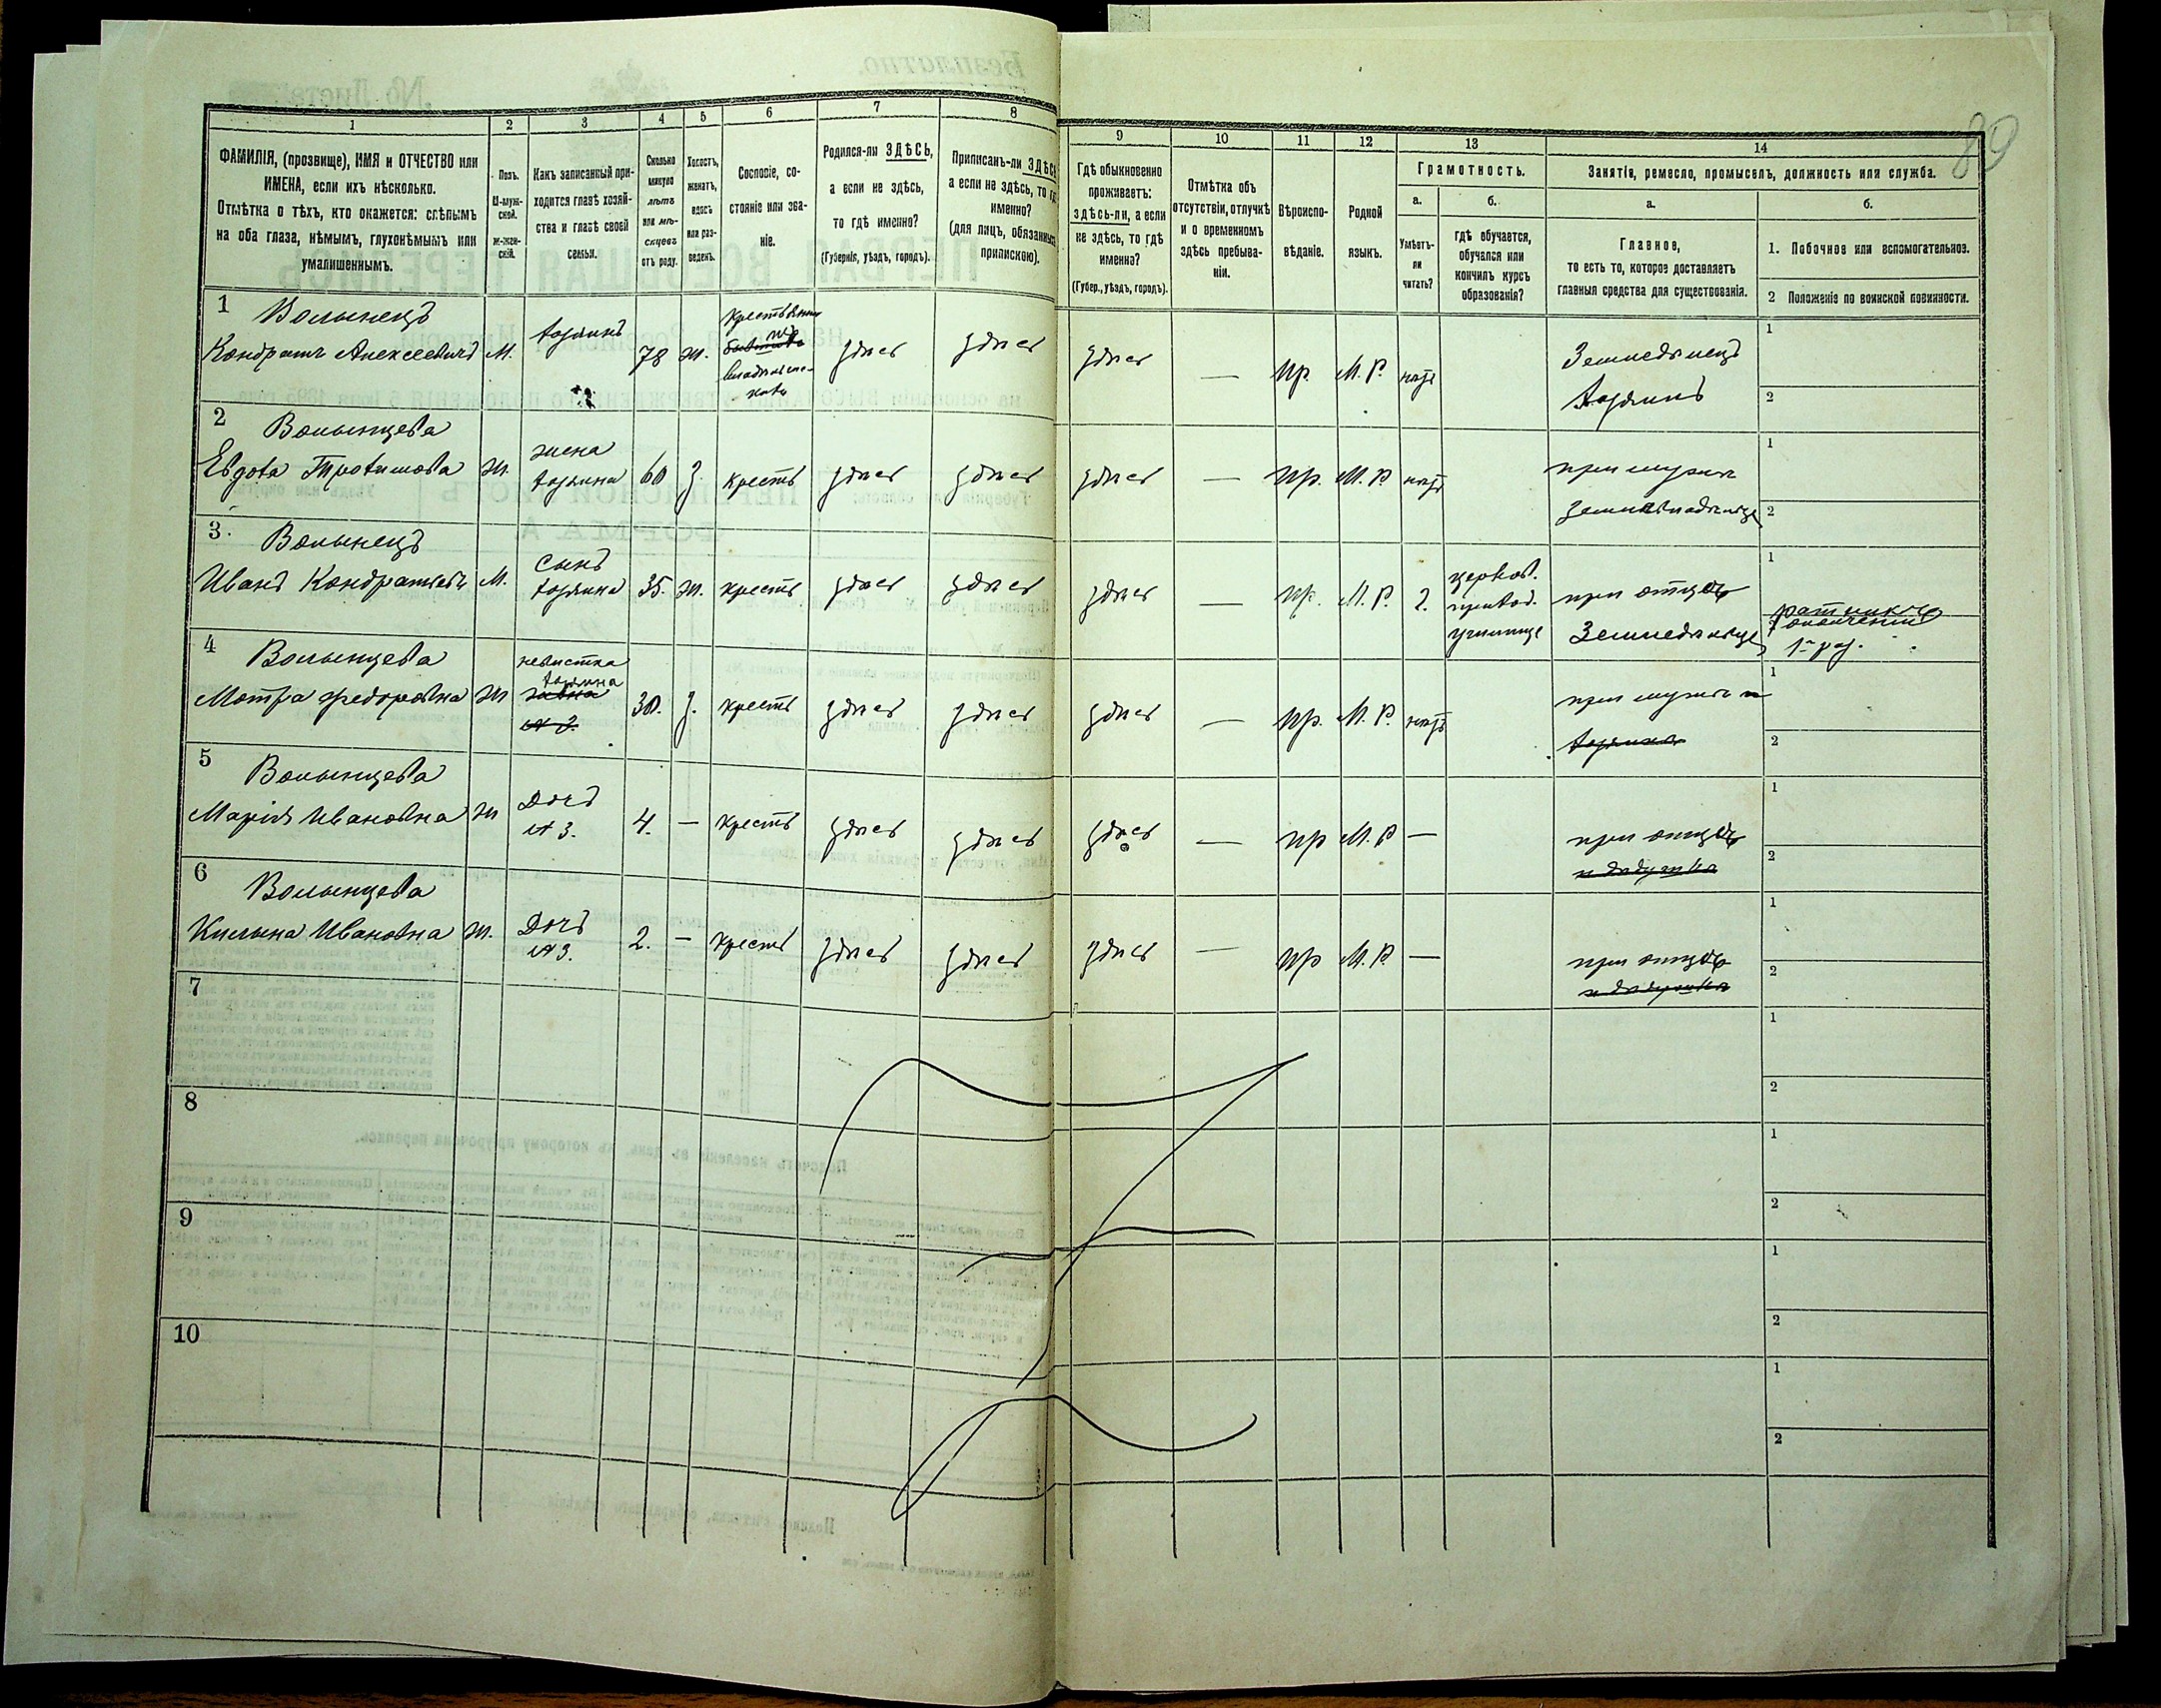 89
1
2
3
4
5
6
7
8
9
10
11
12
13
14
ФАМИЛІЯ, (прозвище), ИМЯ и ОТЧЕСТВО или
ИМЕНА, если ихъ нѣсколько.
Отмѣтка о тѣхъ, кто окажется: слѣпымъ
на оба глаза, нѣмымъ, глухонѣмымъ или
умалишеннымъ.
Полъ.
М-муж-
ской.
Ж-жен-
скій.
Какъ записанный при-
ходится главѣ хозяй-
ства и главѣ своей
семьи.
Сколько
минуло
лѣтъ
или мѣ-
сяцевъ
отъ роду.
Холостъ,
женатъ,
вдовъ
или раз-
веденъ.
Сословіе, со-
стояніе или зва-
ніе.
Родился-ли ЗДѢСЬ,
а если не здѣсь,
то гдѣ именно?
(Губернія, уѣздъ, городъ).
Приписанъ-ли ЗДѢСЬ
а если не здѣсь, то гдѣ
именно?
(для лицъ, обязанныхъ
припискою).
Гдѣ обыкновенно
проживаетъ:
здѣсь-ли, а если
не здѣсь, то гдѣ
именно?
(Губер., уѣздъ, городъ).
Отмѣтка объ
отсутствіи, отлучкѣ
и о временномъ
здѣсь пребыва-
ніи.
Вѣроиспо-
вѣданіе.
Родной
языкъ.
Грамотность.
а.
Умѣетъ-
ли
читать?
б.
гдѣ обучается,
обучался или
кончилъ курсъ
образованія?
Занятіе, ремесло, промыселъ, должность или служба.
а.
Главное,
то есть то, которое доставляетъ
главныя средства для существованія.
б.
1. Побочное или вспомогательное.
2 Положеніе по воинской повинности.
1
Волынецъ
Кондратъ Алексеевичъ
М.
хозяинъ
78
ж.
здѣсь
здѣсь
здѣсь
—
пр.
М. Р.
нѣтъ
Земледѣлецъ
хозяинъ
1
2
2
Волынцева
Евдоха Трохимовна
ж.
жена
хозяина
60
з.
крест
здѣсь
здѣсь
здѣсь
—
пр.
М. Р.
нѣтъ
при мужѣ
1
2
3.
Волынецъ
Иванъ Кондратьевъ
М.
сынъ
хозяина
35.
ж.
крест
здѣсь
здѣсь
здѣсь
—
пр.
М. Р.
г.
церков.
приход.
училище
при отцѣ
Земледѣлецъ
1
ратникъ
ополченія
1го раз.
4
Волынцева
Мотра Федоровна
ж
невистка
хозяина
30.
з.
крест
здѣсь
здѣсь
здѣсь
—
пр.
М. Р.
нѣтъ
при мужѣ
1
2
5
Волынцева
Марія Ивановна
ж
Дочь
№ 3.
4.
—
крест
здѣсь
здѣсь
здѣсь
—
пр
М. Р
—
при отцѣ
и дѣдушкѣ
1
2
6
Волынцева
Килына Ивановна
ж.
Дочь
№ 3.
2.
—
крест
здѣсь
здѣсь
здѣсь
—
пр
М. Р.
—
при отцѣ
и дѣдушкѣ
1
2
7
1
2
8
1
2
9
1
2
10
1
2